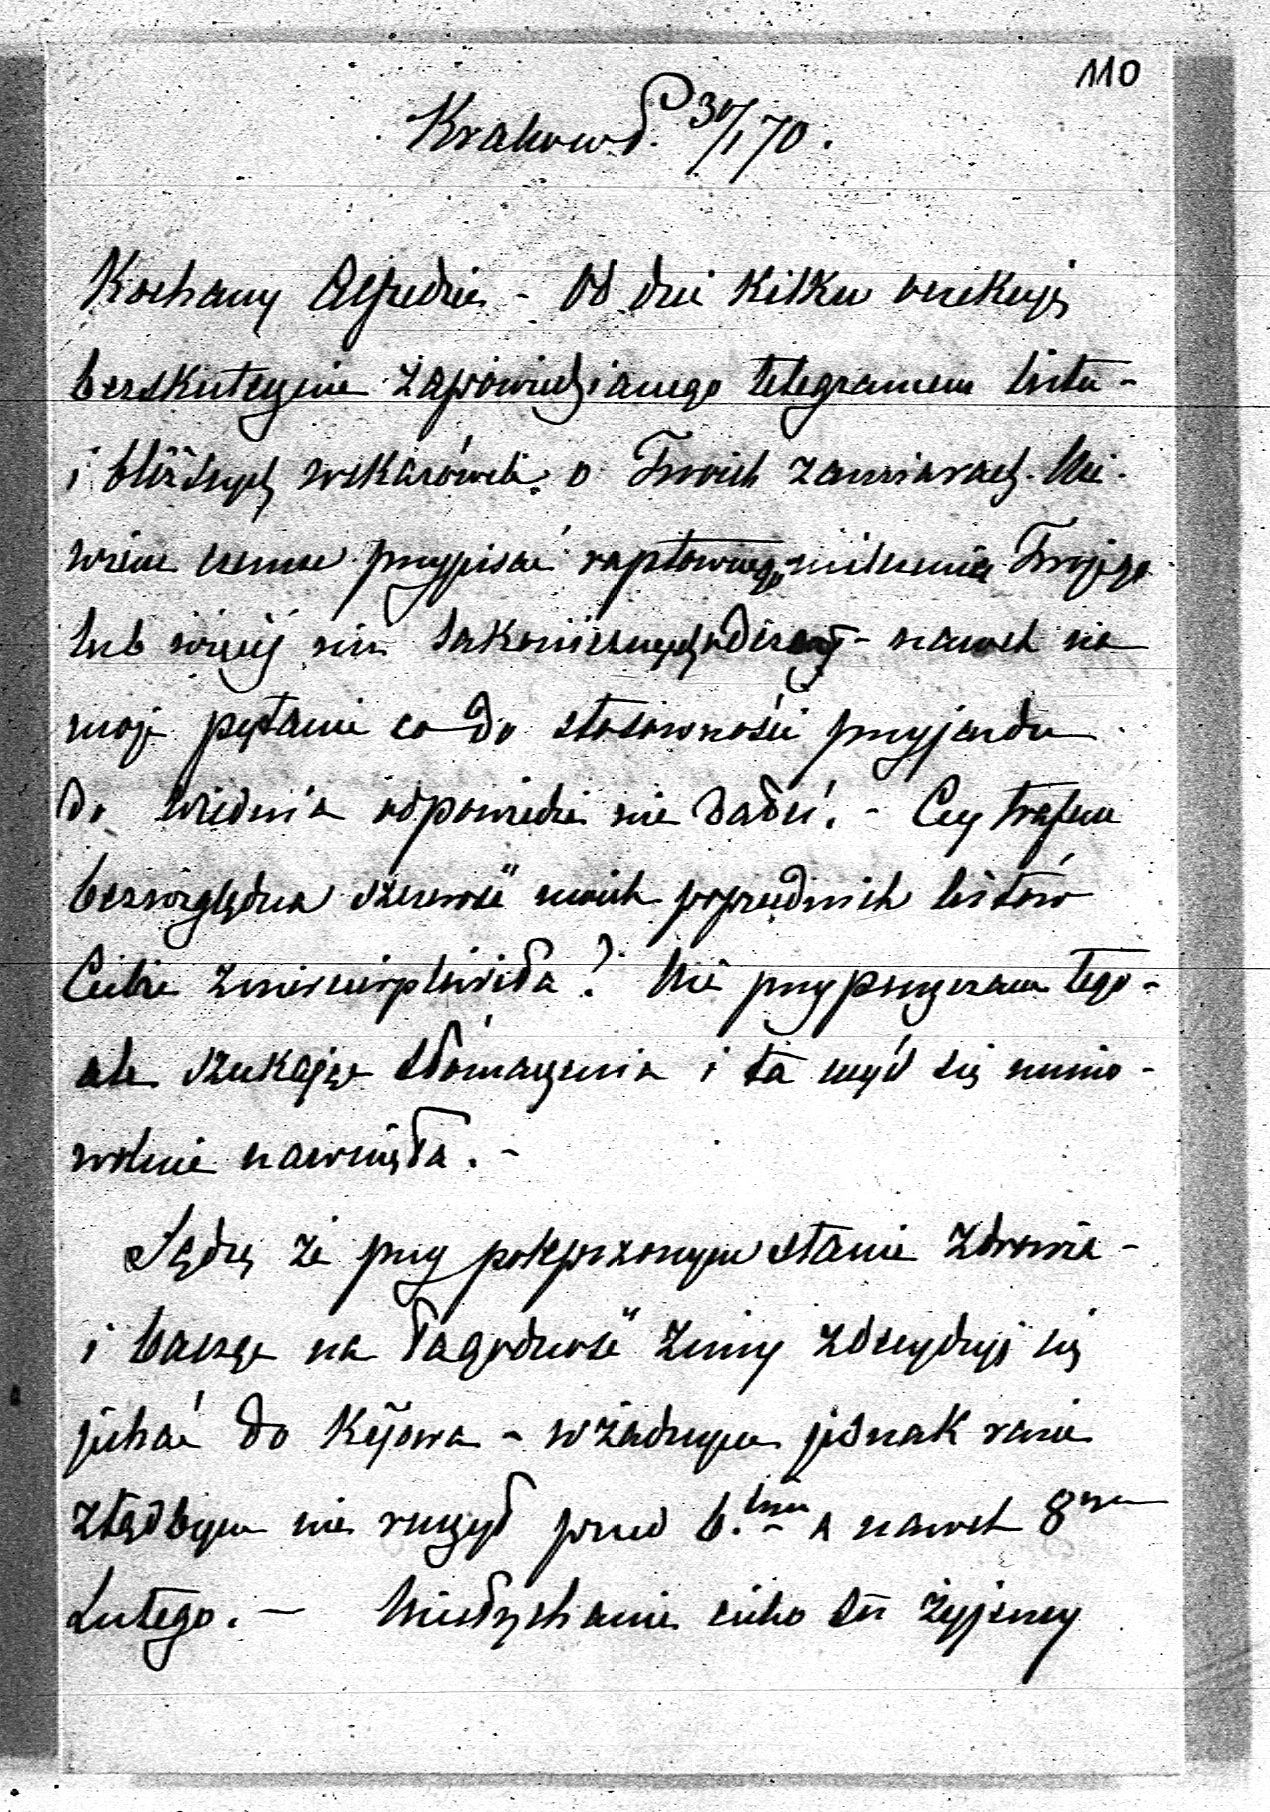 110
Kraków d. 30/1 70.
Kochany Alfredzie - Od dni kilku oczekuję
bezskutecznie zapowiedzianego telegramem listu -
i bliższych wskazówek o Twoich zamiarach. Nie
wiem czemu przypisać raptownego milczenia Twojego
lub więcej niż lakonicznych - nawet na
moje pytanie co do stosowności przyjazdu
do Wiednia odpowiedzi nie dałeś. - Czy trafem
bezwzględna szczerość moich poprzednich listów
Ciebie zniecierpliwiła? Nie przypuszczam tego -
ale szukając tłómaczenia i ta myśl się mimo-
wolnie nawinęła. -
Sądzę że przy polepszonym stanie zdrowia -
i bacząc na łagodność zimy zdecyduję się
jechać do Kijowa - w żadnym jednak razie
ztądbym nie ruszył przed 6. a nawet 8
Lutego. - Niesłychanie cicho tu żyjemy